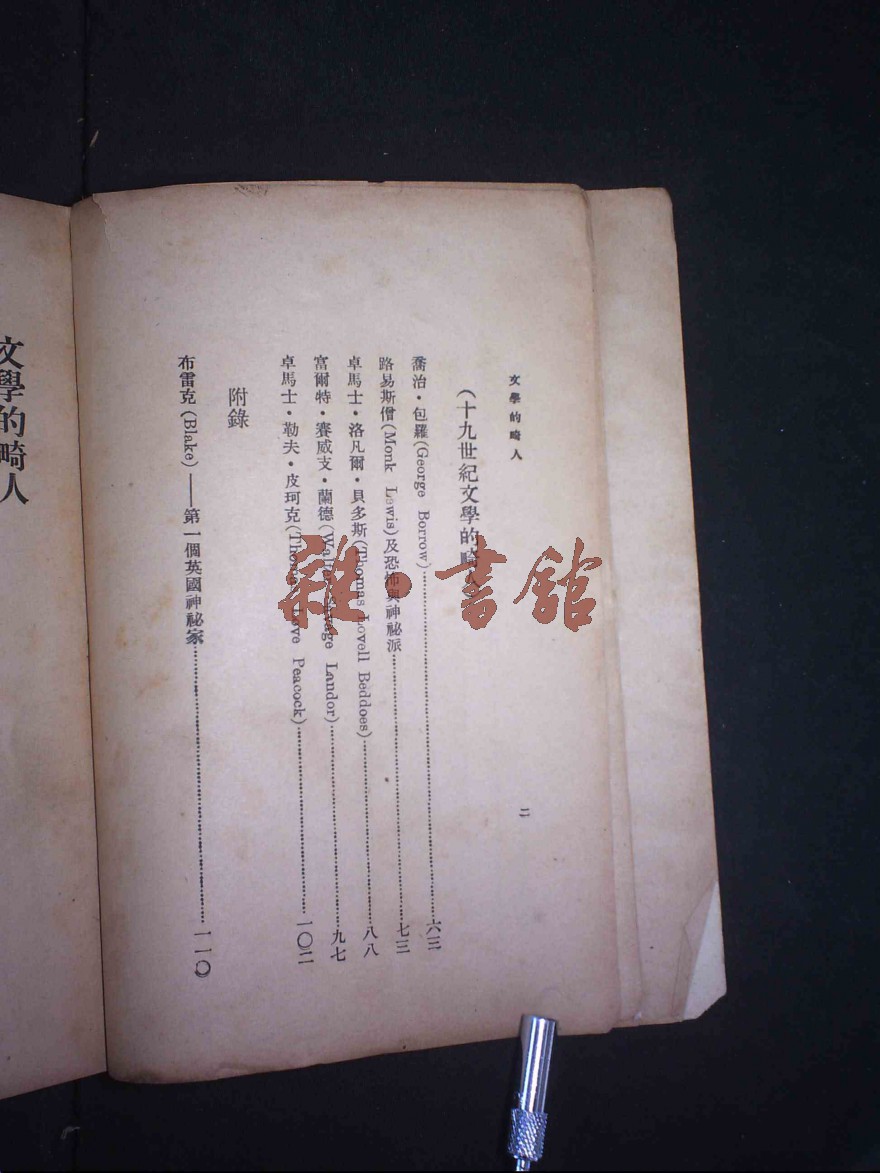 文學的畸人
二
(十九世紀文學的畸人
喬治·包羅(George Borrow)……六三
路易斯僧(Monk Lewis)及恐怖與神祕派……七三
卓馬士·洛凡爾·貝多斯(Thomas Lovell Beddoes)……八八
富爾特·賽威支·蘭德(Walter Savage Landor)……九七
卓馬士·勒夫·皮珂克(Thomas Love Peacock)……一〇二
附錄
布雷克(Blake)——第一個英國神祕家……一一〇
文學的畸人
雜·書館